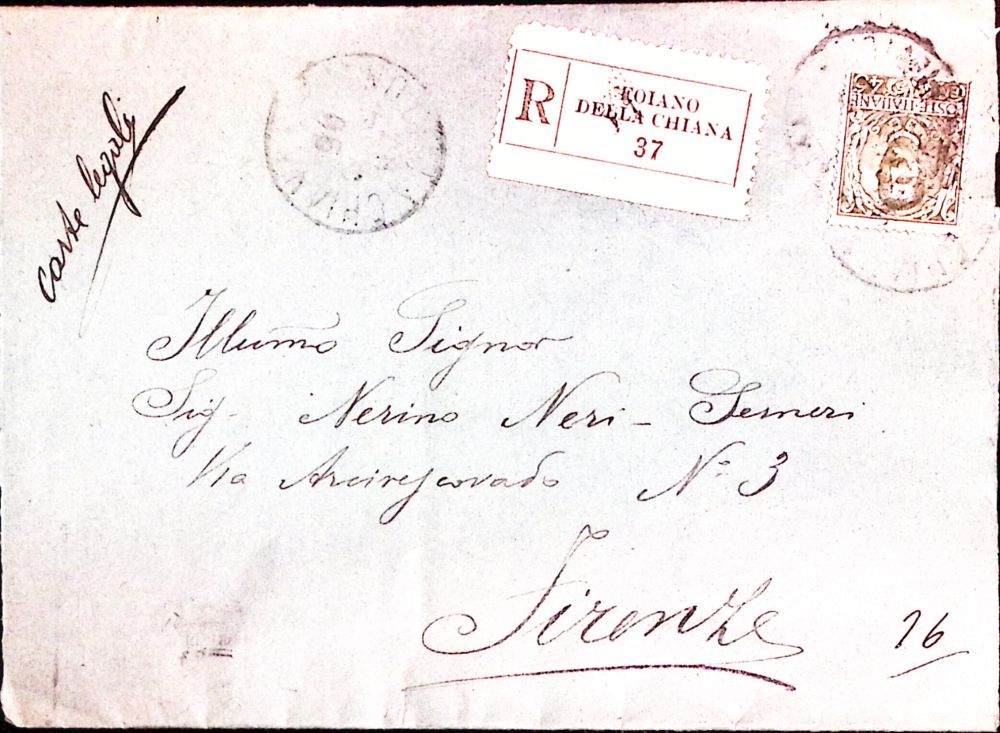 carte legali
R
FOIANO
DELLA CHIANA
37
Illumo Signor
Sig. Nerino Neri - Serneri
Via Arcivescovado N. 3
Firenze
76